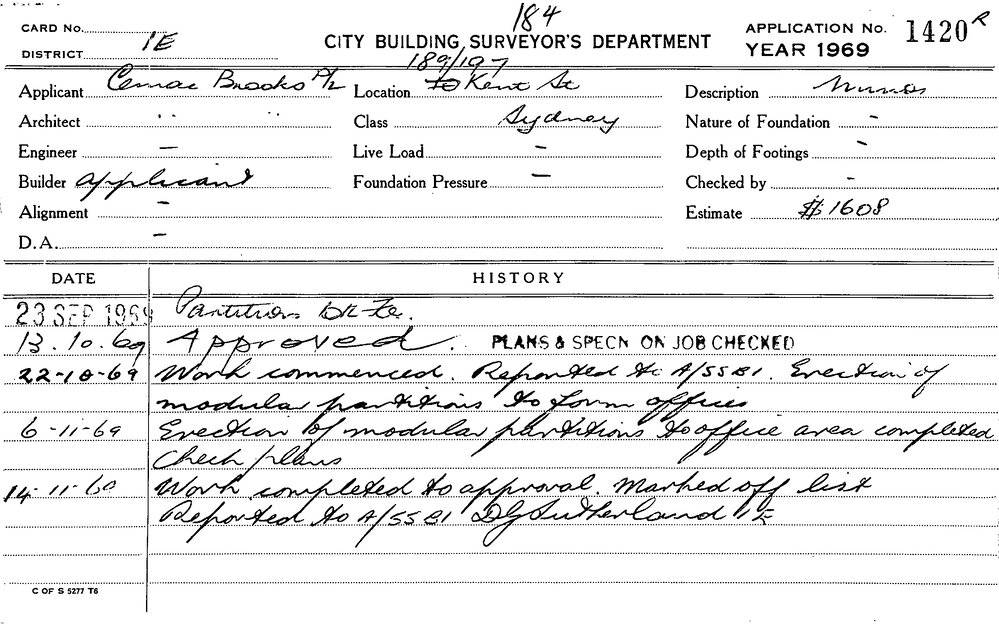 184
CARD No.
DISTRICT 1E
CITY BUILDING SURVEYOR'S DEPARTMENT
APPLICATION No. 1420 R
YEAR 1969
189/197
Applicant Cemac Brooks P/L Location Kent St Description
Architect " " Class Sydney Nature of Foundation -
Engineer - Live Load - Depth of Footings -
Builder applicant Foundation Pressure - Checked by -
Alignment - Estimate $1608
D.A. -
DATE HISTORY
23 SEP 1969 Partitions
13.10.69 Approved. PLANS & SPECN ON JOB CHECKED
22-10-69 Work commenced. Reported to A/SSBI. Erection of
modular partitions to form offices
6-11-69 Erection of modular partitions to office area completed
Check plans
14-11-69 Work completed to approval. Marked off list
Reported to A/SSBI DG Sutherland 1E
C OF S 5277 T6